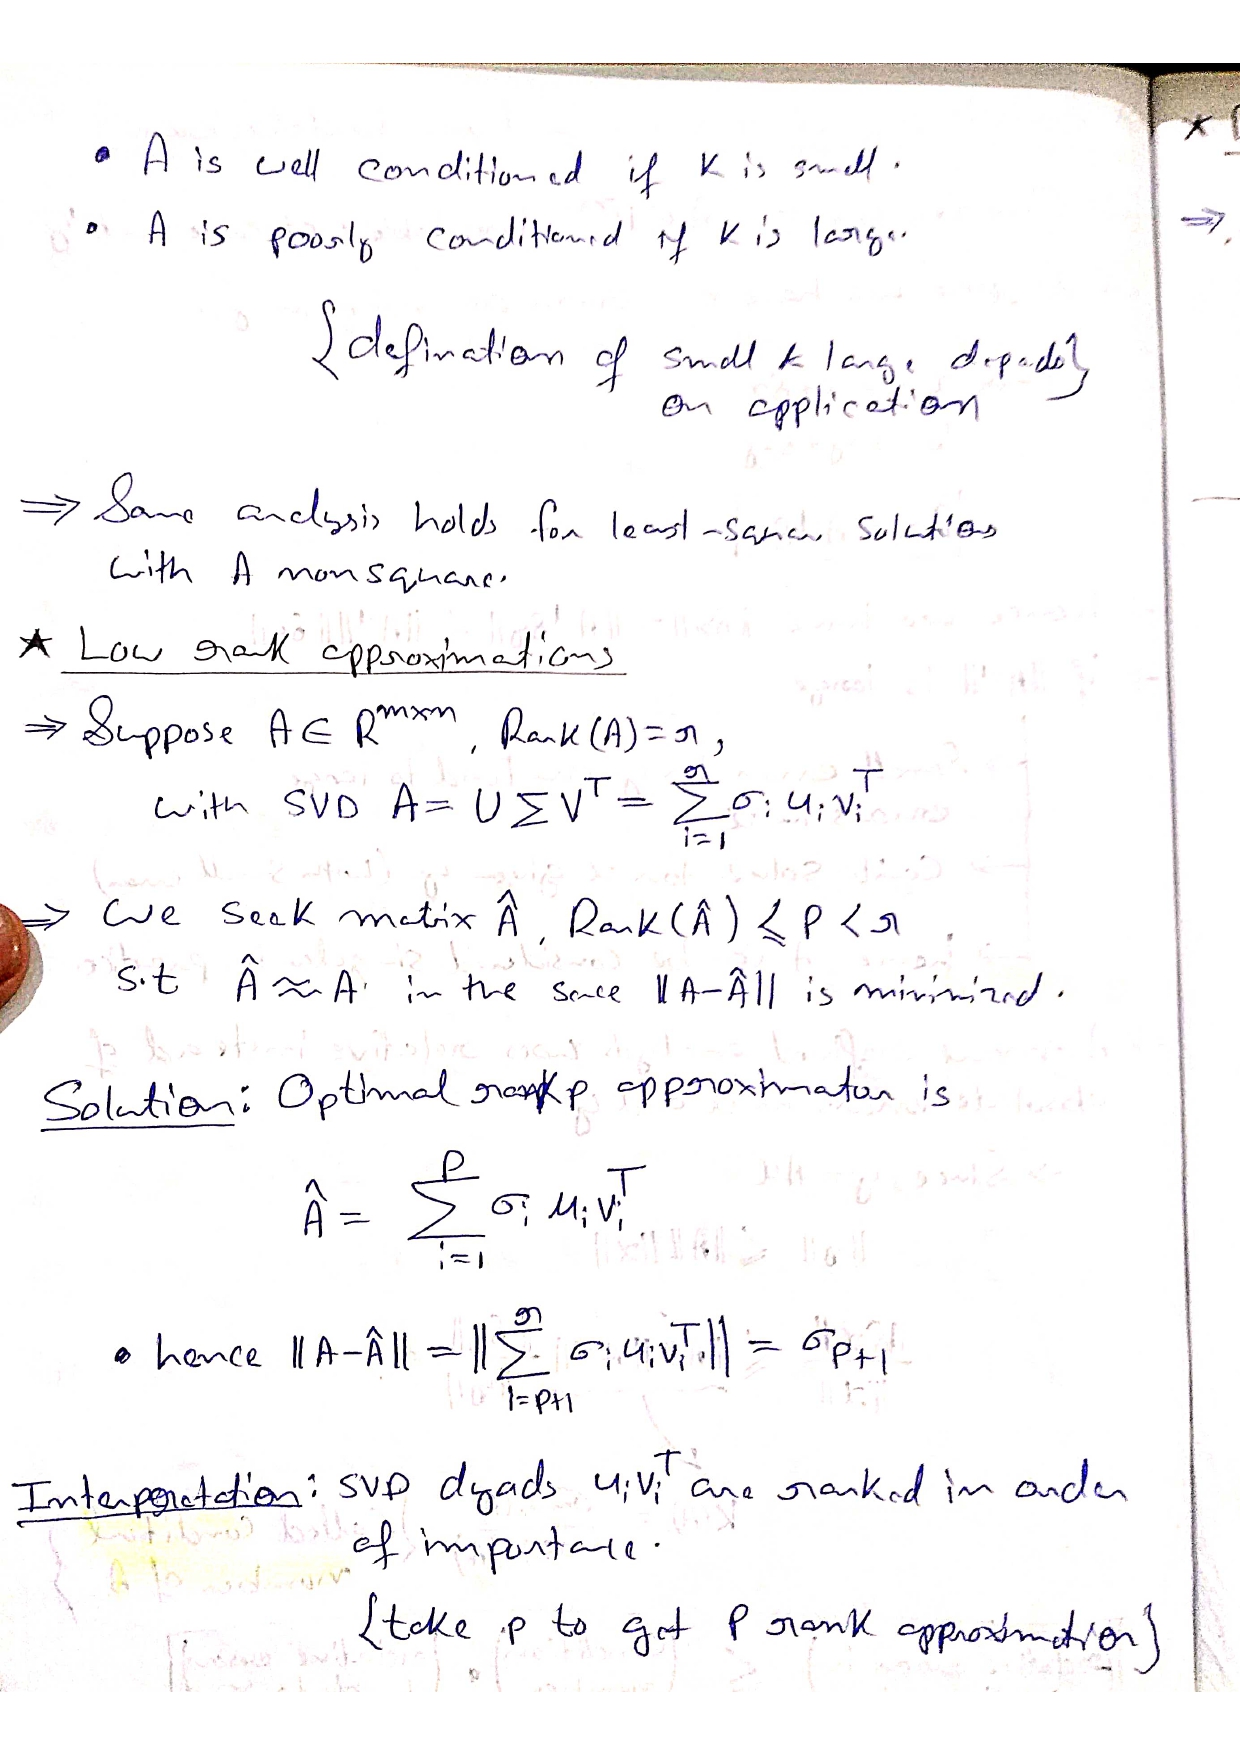 • A is well conditioned if K is small.
• A is poorly conditioned if K is large.
{defination of small & large depends}
on application
⇒ Same analysis holds for least-square solutions
with A nonsquare.
★ Low rank approximations
⇒ Suppose A ∈ R^{m×n}, Rank(A) = r,
with SVD A = UΣV^T = Σ_{i=1}^{r} σ_i u_i v_i^T
⇒ We seek matrix Â, Rank(Â) ≤ p < r
s.t Â ≈ A in the sence ||A-Â|| is minimized.
Solution: Optimal rank p approximaton is
Â = Σ_{i=1}^{p} σ_i u_i v_i^T
• hence ||A-Â|| = ||Σ_{i=p+1}^{r} σ_i u_i v_i^T|| = σ_{p+1}
Interpretation: SVD dyads u_i v_i^T are ranked in order
of importance.
{take p to get P rank approximation}